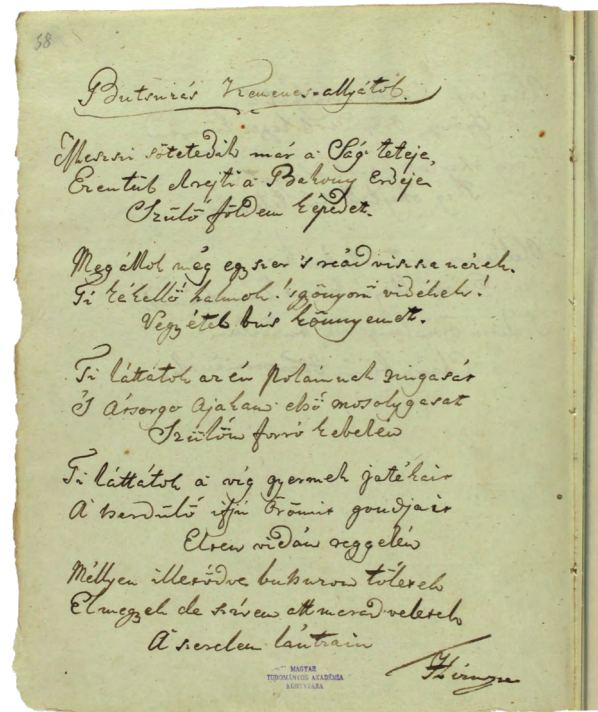 58
Butsúzás Kemenes-allyátol.
Messzi sötetedik már a Ság teteje,
Ezentúl elrejti a Bakony Erdeje
Szülő földem képedet.
Meg állok még egyszer 's reád vissza nézek.
Ti kékellő halmok! 's gönyorü vidékek!
Vegyétek bús könnyemet.
Ti láttátok az én polaimnak ringasát
'S Ártsorgo Ajakam első mosolygasat
Szülőm forró kebelén
Ti láttátok a víg gyermek jatékait
A serdülő ifjú örömit gondjait
Eltem vidám reggelén
Mellyen illetődve butsuzom tőletek
Elmegyek de szívem ott marad veletek
A szerelem lántzain
MAGYAR
TUDOMÁNYOS AKADÉMIA
KÖNYVTÁRA